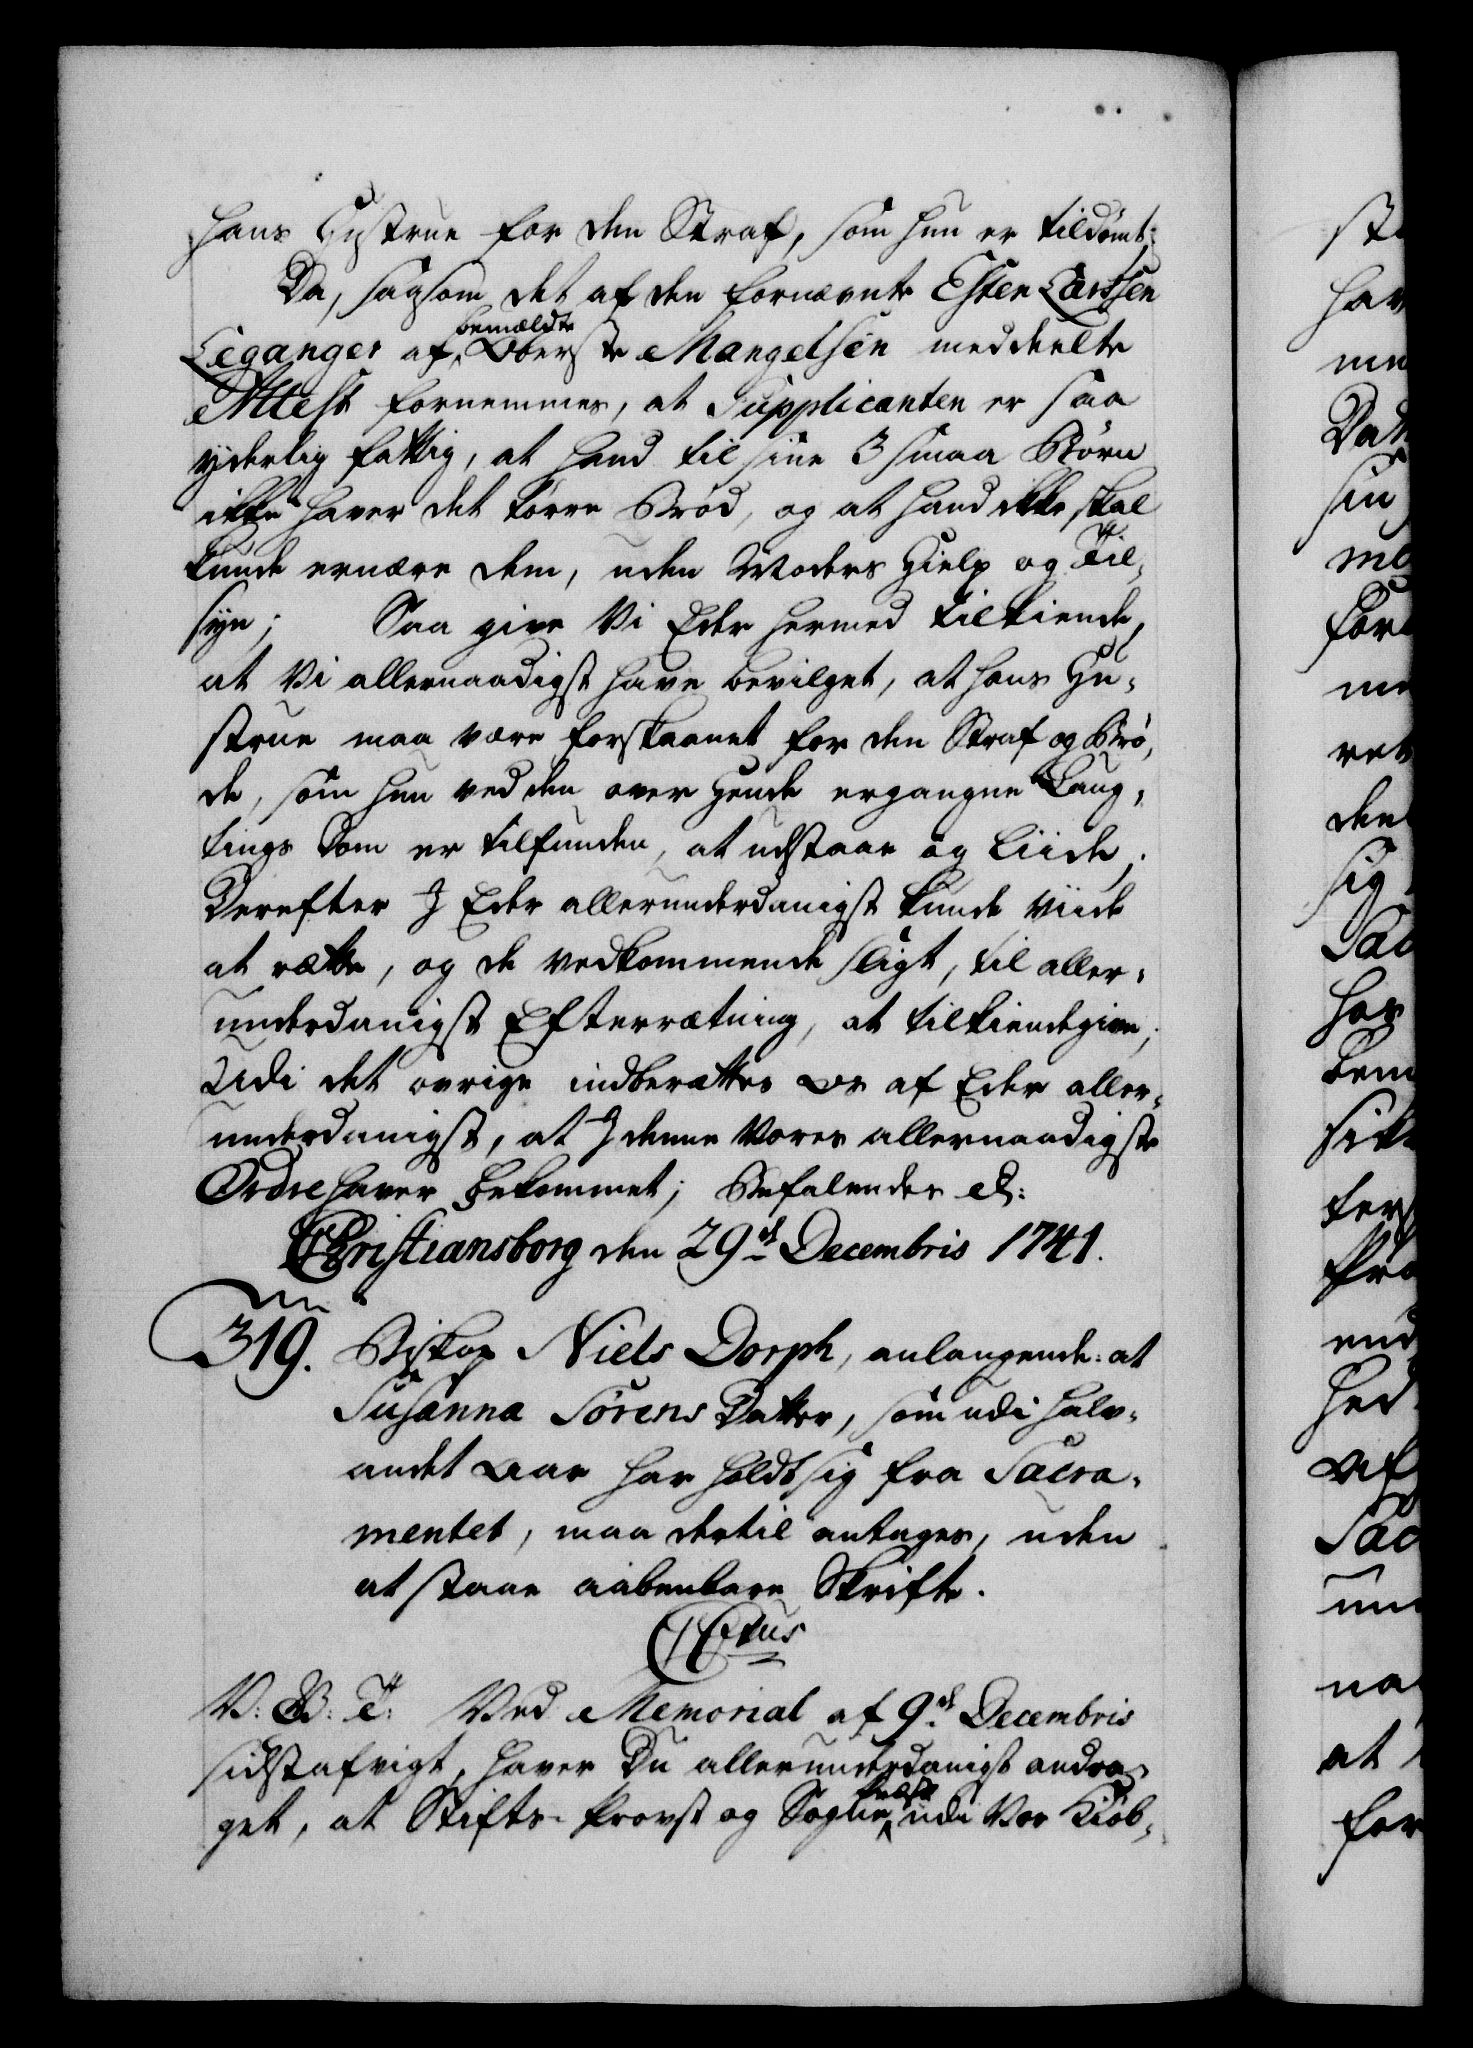 hans Hustrue for den Straf, som hun er tildømt:
Da, saasom det af den fornævnte Esten Larssen
Leganger af bemældte Oberste Mangelsen meddeelte
Attest fornemmes, at Supplicanten er saa
yderlig fattig, at hand til sine 3 smaa Børn
ikke haver det tørre Brød, og at hand ikke skal
kunde ernære dem, uden Moders Hielp og Til-
syn; Saa give Vi Eder hermed tilkiende,
at Vi allernaadigst have bevilget, at hans Hu-
strue maa være forskaanet for den Straf og Brø-
de, som hun ved den over hende ergangne Laug-
tings Dom er tilfunden, at udstaae og liide;
Derefter I Eder allerunderdanigst kunde viide
at rætte, og de vedkommende sligt, til aller-
underdanigst Efterrætning, at tilkiendegive;
Udi det øvrige indberættes Os af Eder aller-
underdanigst, at I denne Vores allernaadigste
Ordre haver bekommet; Befalendes etc:
Christiansborg den 29de Decembris 1741.
319. Biskop Niels Dorph, anlangende: at
Susanna Sørens Datter, som udi halv-
andet Aar har holdt sig fra Sacra-
mentet, maa dertil antages, uden
at staae aabenbare Skrifte.
CStus
V: G: T: Ved Memorial af 9de Decembris
sidstafvigt, haver Du allerunderdanigst andra-
get, at Stifts-Provst og Sogne Præst udi Vor Kiøb-